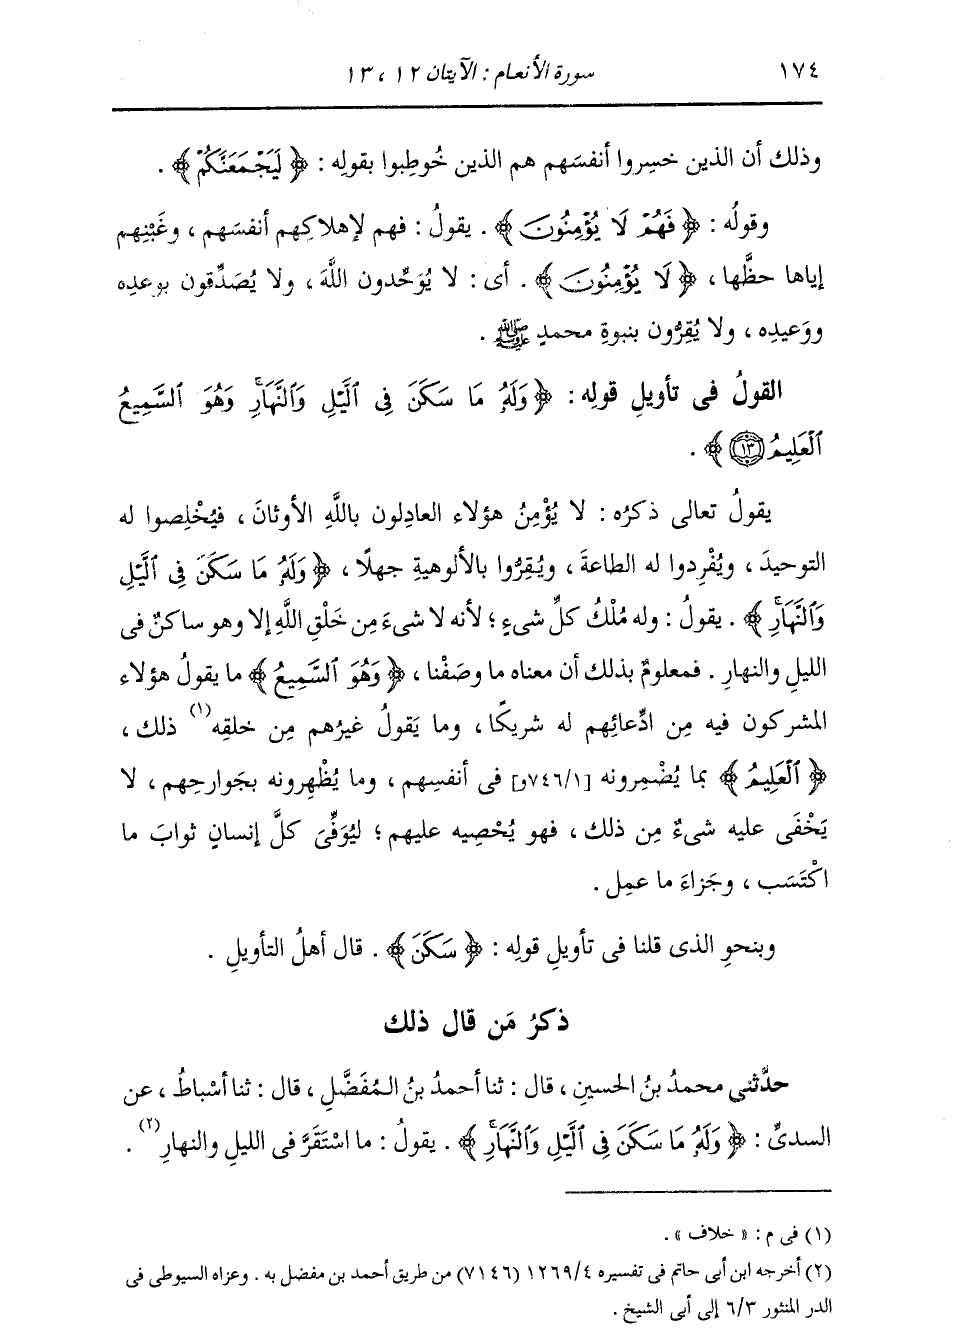 ١٧٤ سورة الأنعام : الآيتان ١٢ ، ١٣
وذلك أن الذين خسِروا أنفسَهم هم الذين خُوطِبوا بقولِه : ﴿ لَيَجْمَعَنَّكُمْ ﴾ .
وقولُه : ﴿ فَهُمْ لَا يُؤْمِنُونَ ﴾ . يقولُ : فهم لإهلاكِهم أنفسَهم ، وغَبْنِهم
إياها حظَّها ، ﴿ لَا يُؤْمِنُونَ ﴾ . أى : لا يُوَحِّدون اللَّهَ ، ولا يُصَدِّقون بوعدِه
ووَعيدِه ، ولا يُقِرُّون بنبوةِ محمدٍ ﷺ .
القولُ فى تأويلِ قولِه : ﴿ وَلَهُۥ مَا سَكَنَ فِى ٱلَّيْلِ وَٱلنَّهَارِ ۚ وَهُوَ ٱلسَّمِيعُ
ٱلْعَلِيمُ ﴿١٣﴾ ﴾ .
يقولُ تعالى ذكرُه : لا يُؤْمِنُ هؤلاء العادِلون باللَّهِ الأوثانَ ، فيُخْلِصوا له
التوحيدَ ، ويُفْرِدوا له الطاعةَ ، ويُقِرُّوا بالألوهيةِ جهلًا ، ﴿ وَلَهُۥ مَا سَكَنَ فِى ٱلَّيْلِ
وَٱلنَّهَارِ ۚ ﴾ . يقولُ : وله مُلْكُ كلِّ شىءٍ ؛ لأنه لا شىءَ مِن خَلْقِ اللَّهِ إلا وهو ساكنٌ فى
الليلِ والنهارِ . فمعلومٌ بذلك أن معناه ما وصَفْنا ، ﴿ وَهُوَ ٱلسَّمِيعُ ﴾ ما يقولُ هؤلاء
المشركون فيه مِن ادِّعائِهم له شريكًا ، وما يَقولُ غيرُهم مِن خلقِه(١) ذلك ،
﴿ ٱلْعَلِيمُ ﴾ بما يُضْمِرونه [٧٤٦/١و] فى أنفسِهم ، وما يُظْهِرونه بجَوارحِهم ، لا
يَخْفَى عليه شىءٌ مِن ذلك ، فهو يُحْصِيه عليهم ؛ ليُوَفِّىَ كلَّ إنسانٍ ثوابَ ما
اكْتَسَب ، وجَزاءَ ما عمِل .
وبنحوِ الذى قلنا فى تأويلِ قولِه : ﴿ سَكَنَ ﴾ . قال أهلُ التأويلِ .
ذكرُ مَن قال ذلك
حدَّثنى محمدُ بنُ الحسينِ ، قال : ثنا أحمدُ بنُ المُفَضَّلِ ، قال : ثنا أسْباطُ ، عن
السدىِّ : ﴿ وَلَهُۥ مَا سَكَنَ فِى ٱلَّيْلِ وَٱلنَّهَارِ ۚ ﴾ . يقولُ : ما اسْتَقَرَّ فى الليلِ والنهارِ(٢) .
(١) فى م : « خلاف » .
(٢) أخرجه ابن أبى حاتم فى تفسيره ١٢٦٩/٤ (٧١٤٦) من طريق أحمد بن مفضل به . وعزاه السيوطى فى
الدر المنثور ٦/٣ إلى أبى الشيخ .